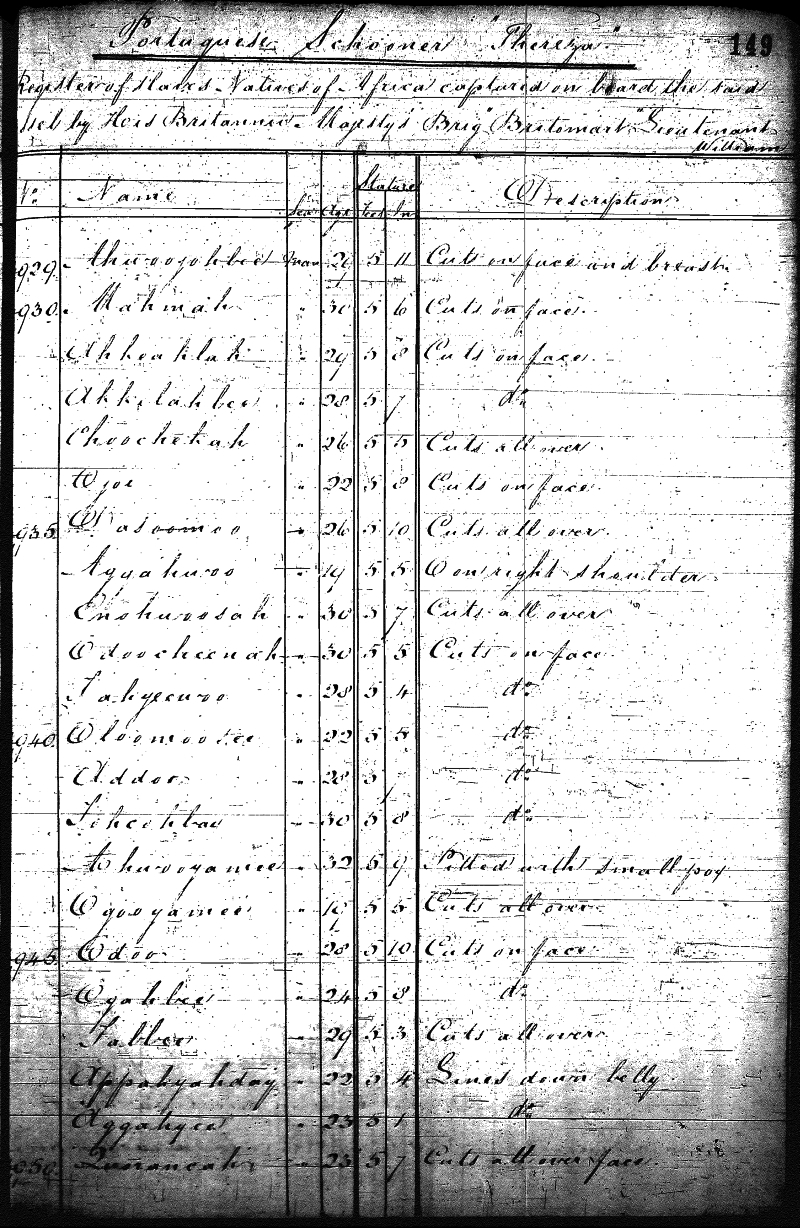 Portuguese Schooner "Thereza"
149
Register of Slaves Natives of Africa captured on board the said
ssel by Her Britannic Majesty's Brig "Britomart" Lieutenant
William
No. Name Sex Age Stature Feet In Description
929 Man 26 5 11 Cuts on face and breast
930 Mahmah " 30 5 6 Cuts on face.
Ahkoahlah " 29 5 8 Cuts on face.
Ahkelahbee " 28 5 7 do
Choochekah " 26 5 5 Cuts all over.
Ojoe " 22 5 8 Cuts on face.
935 " 26 5 10 Cuts all over.
Aggahwoo " 19 5 5 O on right shoulder
Enohwoosah " 30 5 7 Cuts all over
Odoocheenah " 30 5 5 Cuts on face
Jahyeewoo " 28 5 4 do
940 Oloomoosee " 22 5 5 do
Addoo " 28 5 do
" 30 5 8 do
Ahwooyamee " 32 5 9 Pitted with small pox
Ogooyamee " 19 5 5 Cuts all over.
945 Odoo " 28 5 10 Cuts on face
Ogahbee " 24 5 8 do
Jabbee " 29 5 3 Cuts all over
Appahyahday " 22 5 4 Lines down belly
Aggahyee " 25 5 1 do
050 " 25 5 7 Cuts all over face.